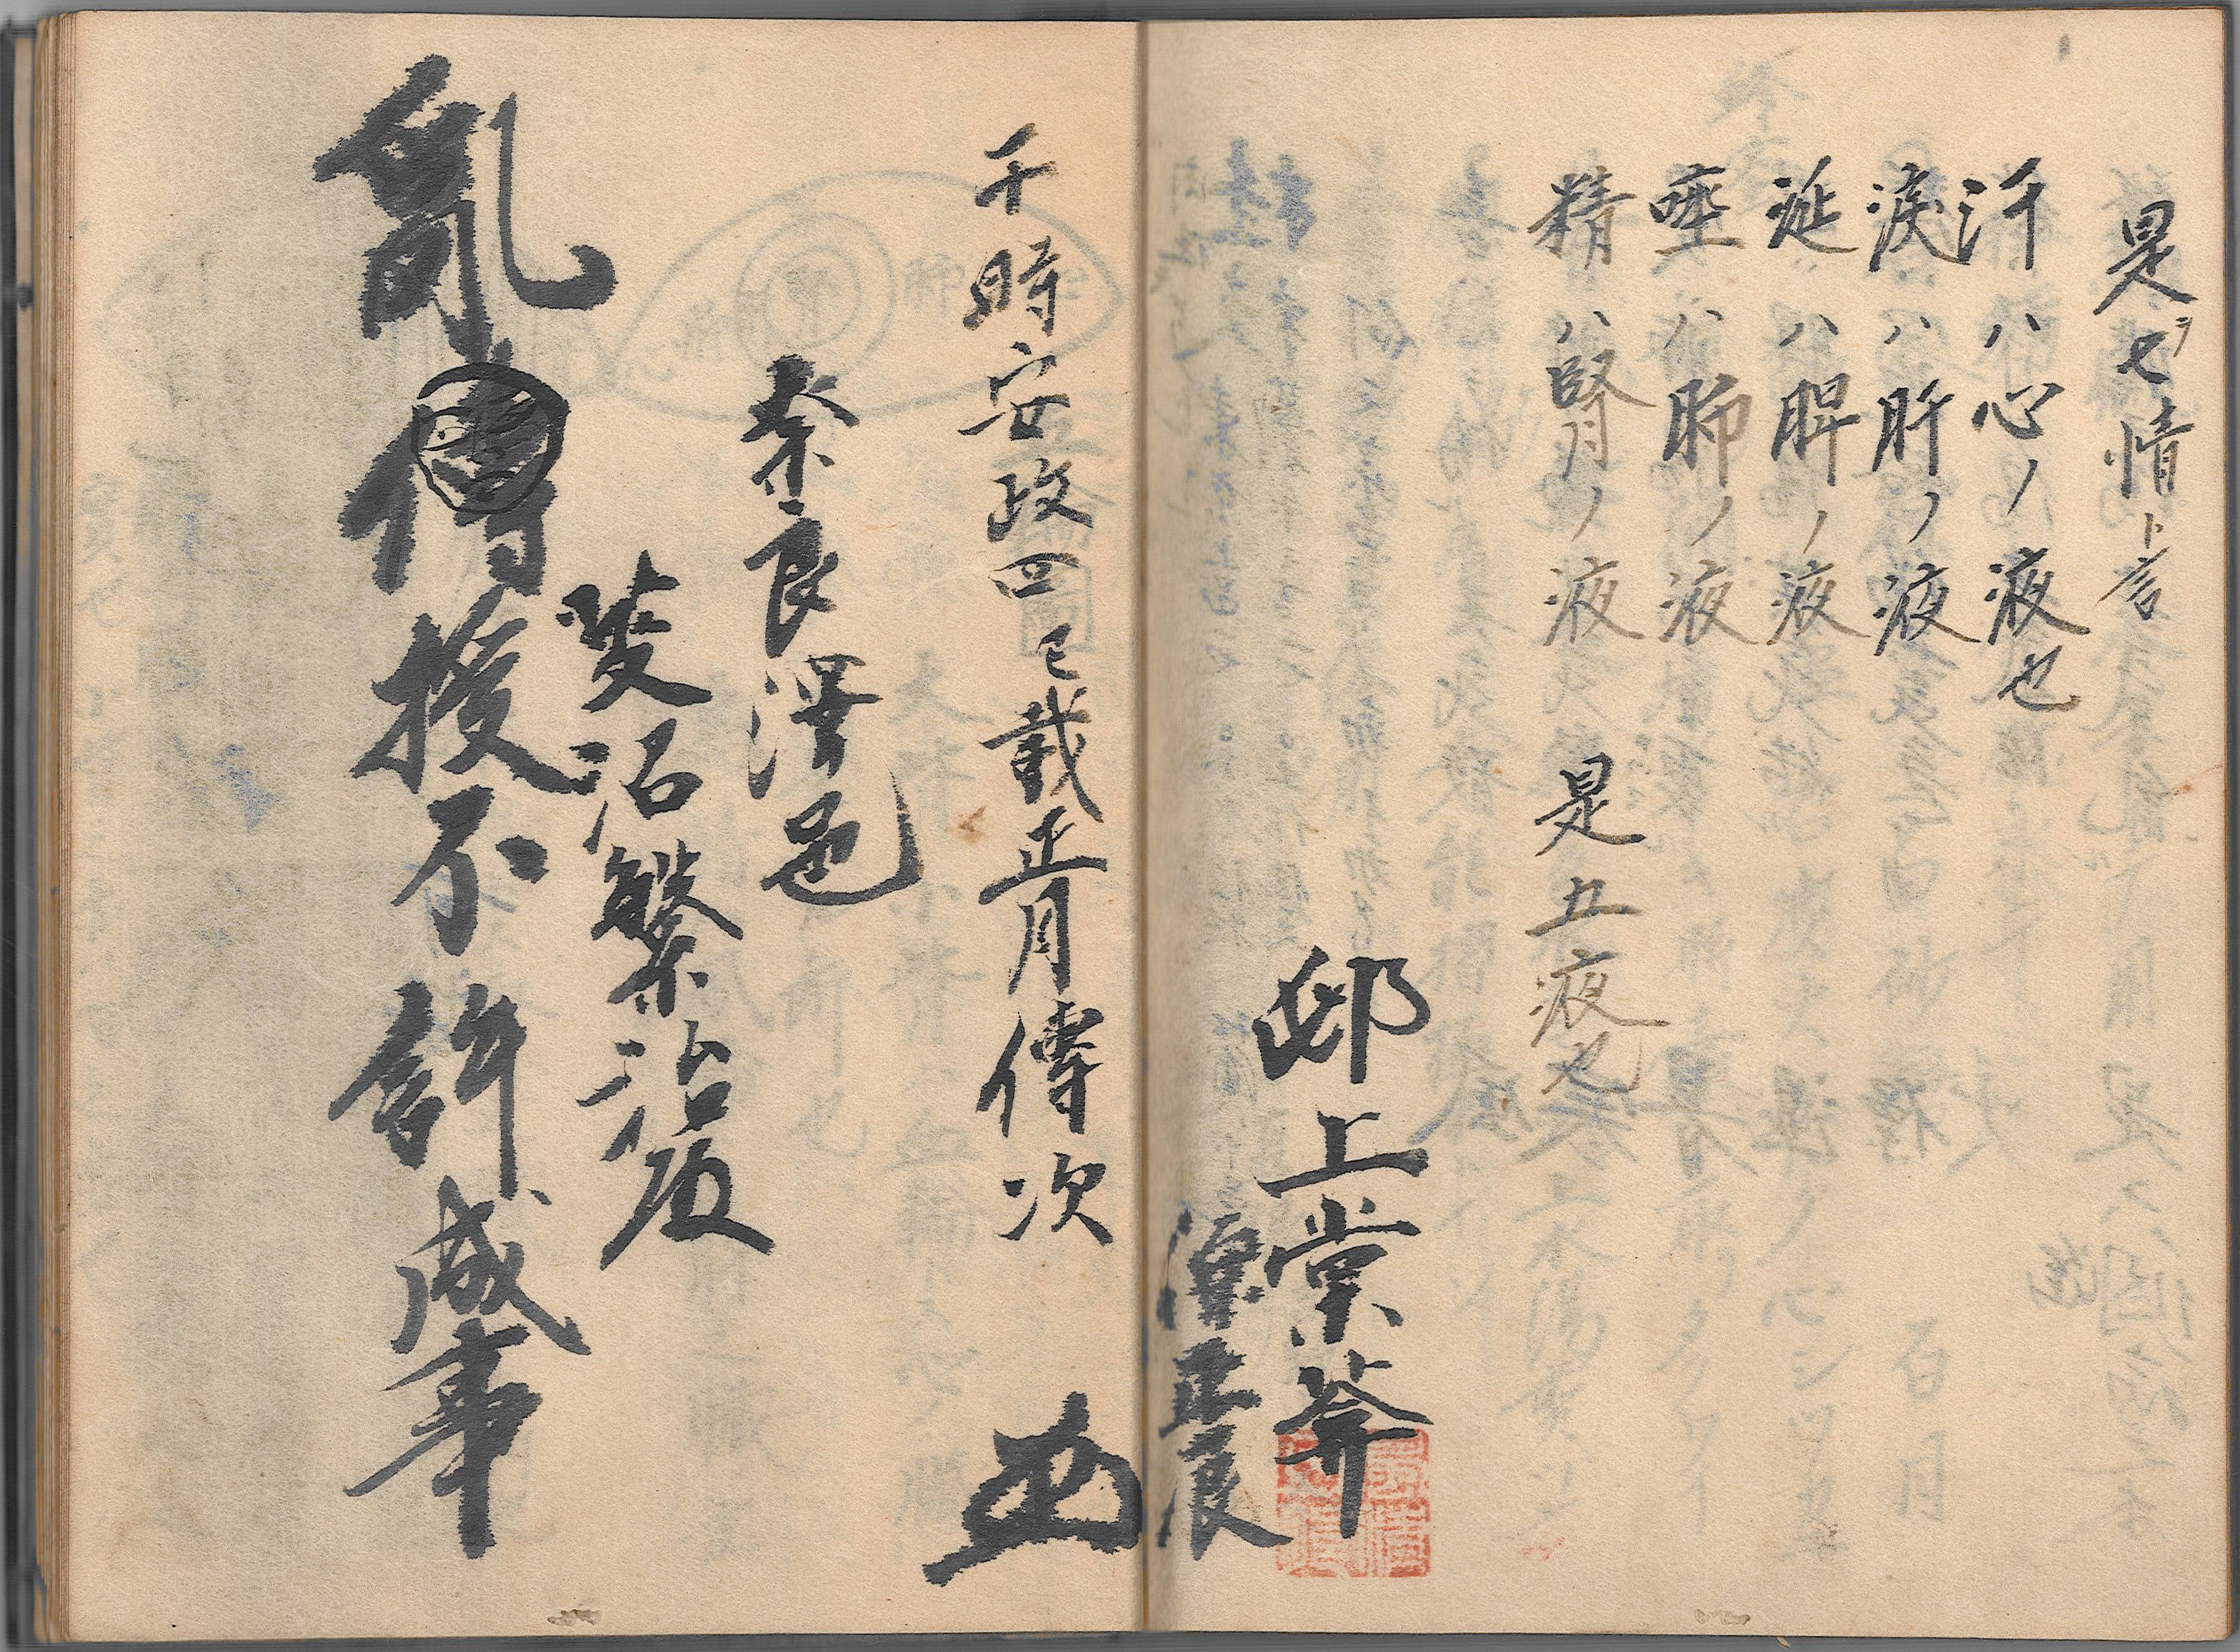 是ヲ七情ト言
汗ハ心ノ液也
涙ハ肝ノ液
涎ハ脾ノ液
唾ハ肺ノ液
精ハ腎ノ液
是五液也
邸上棠斧
源正良
干時安政四巳載正月傳次
奈良澤邑
菱沼繁治
亂傳授不許成事